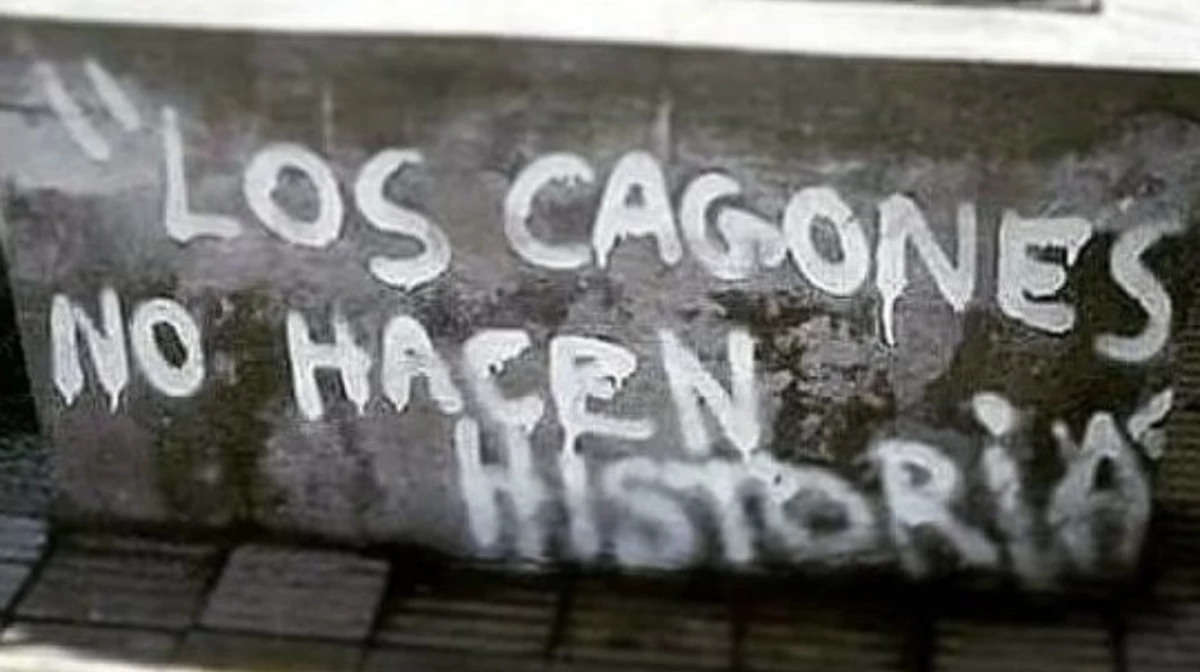 "LOS CAGONES
NO HACEN
HiSTORiA"